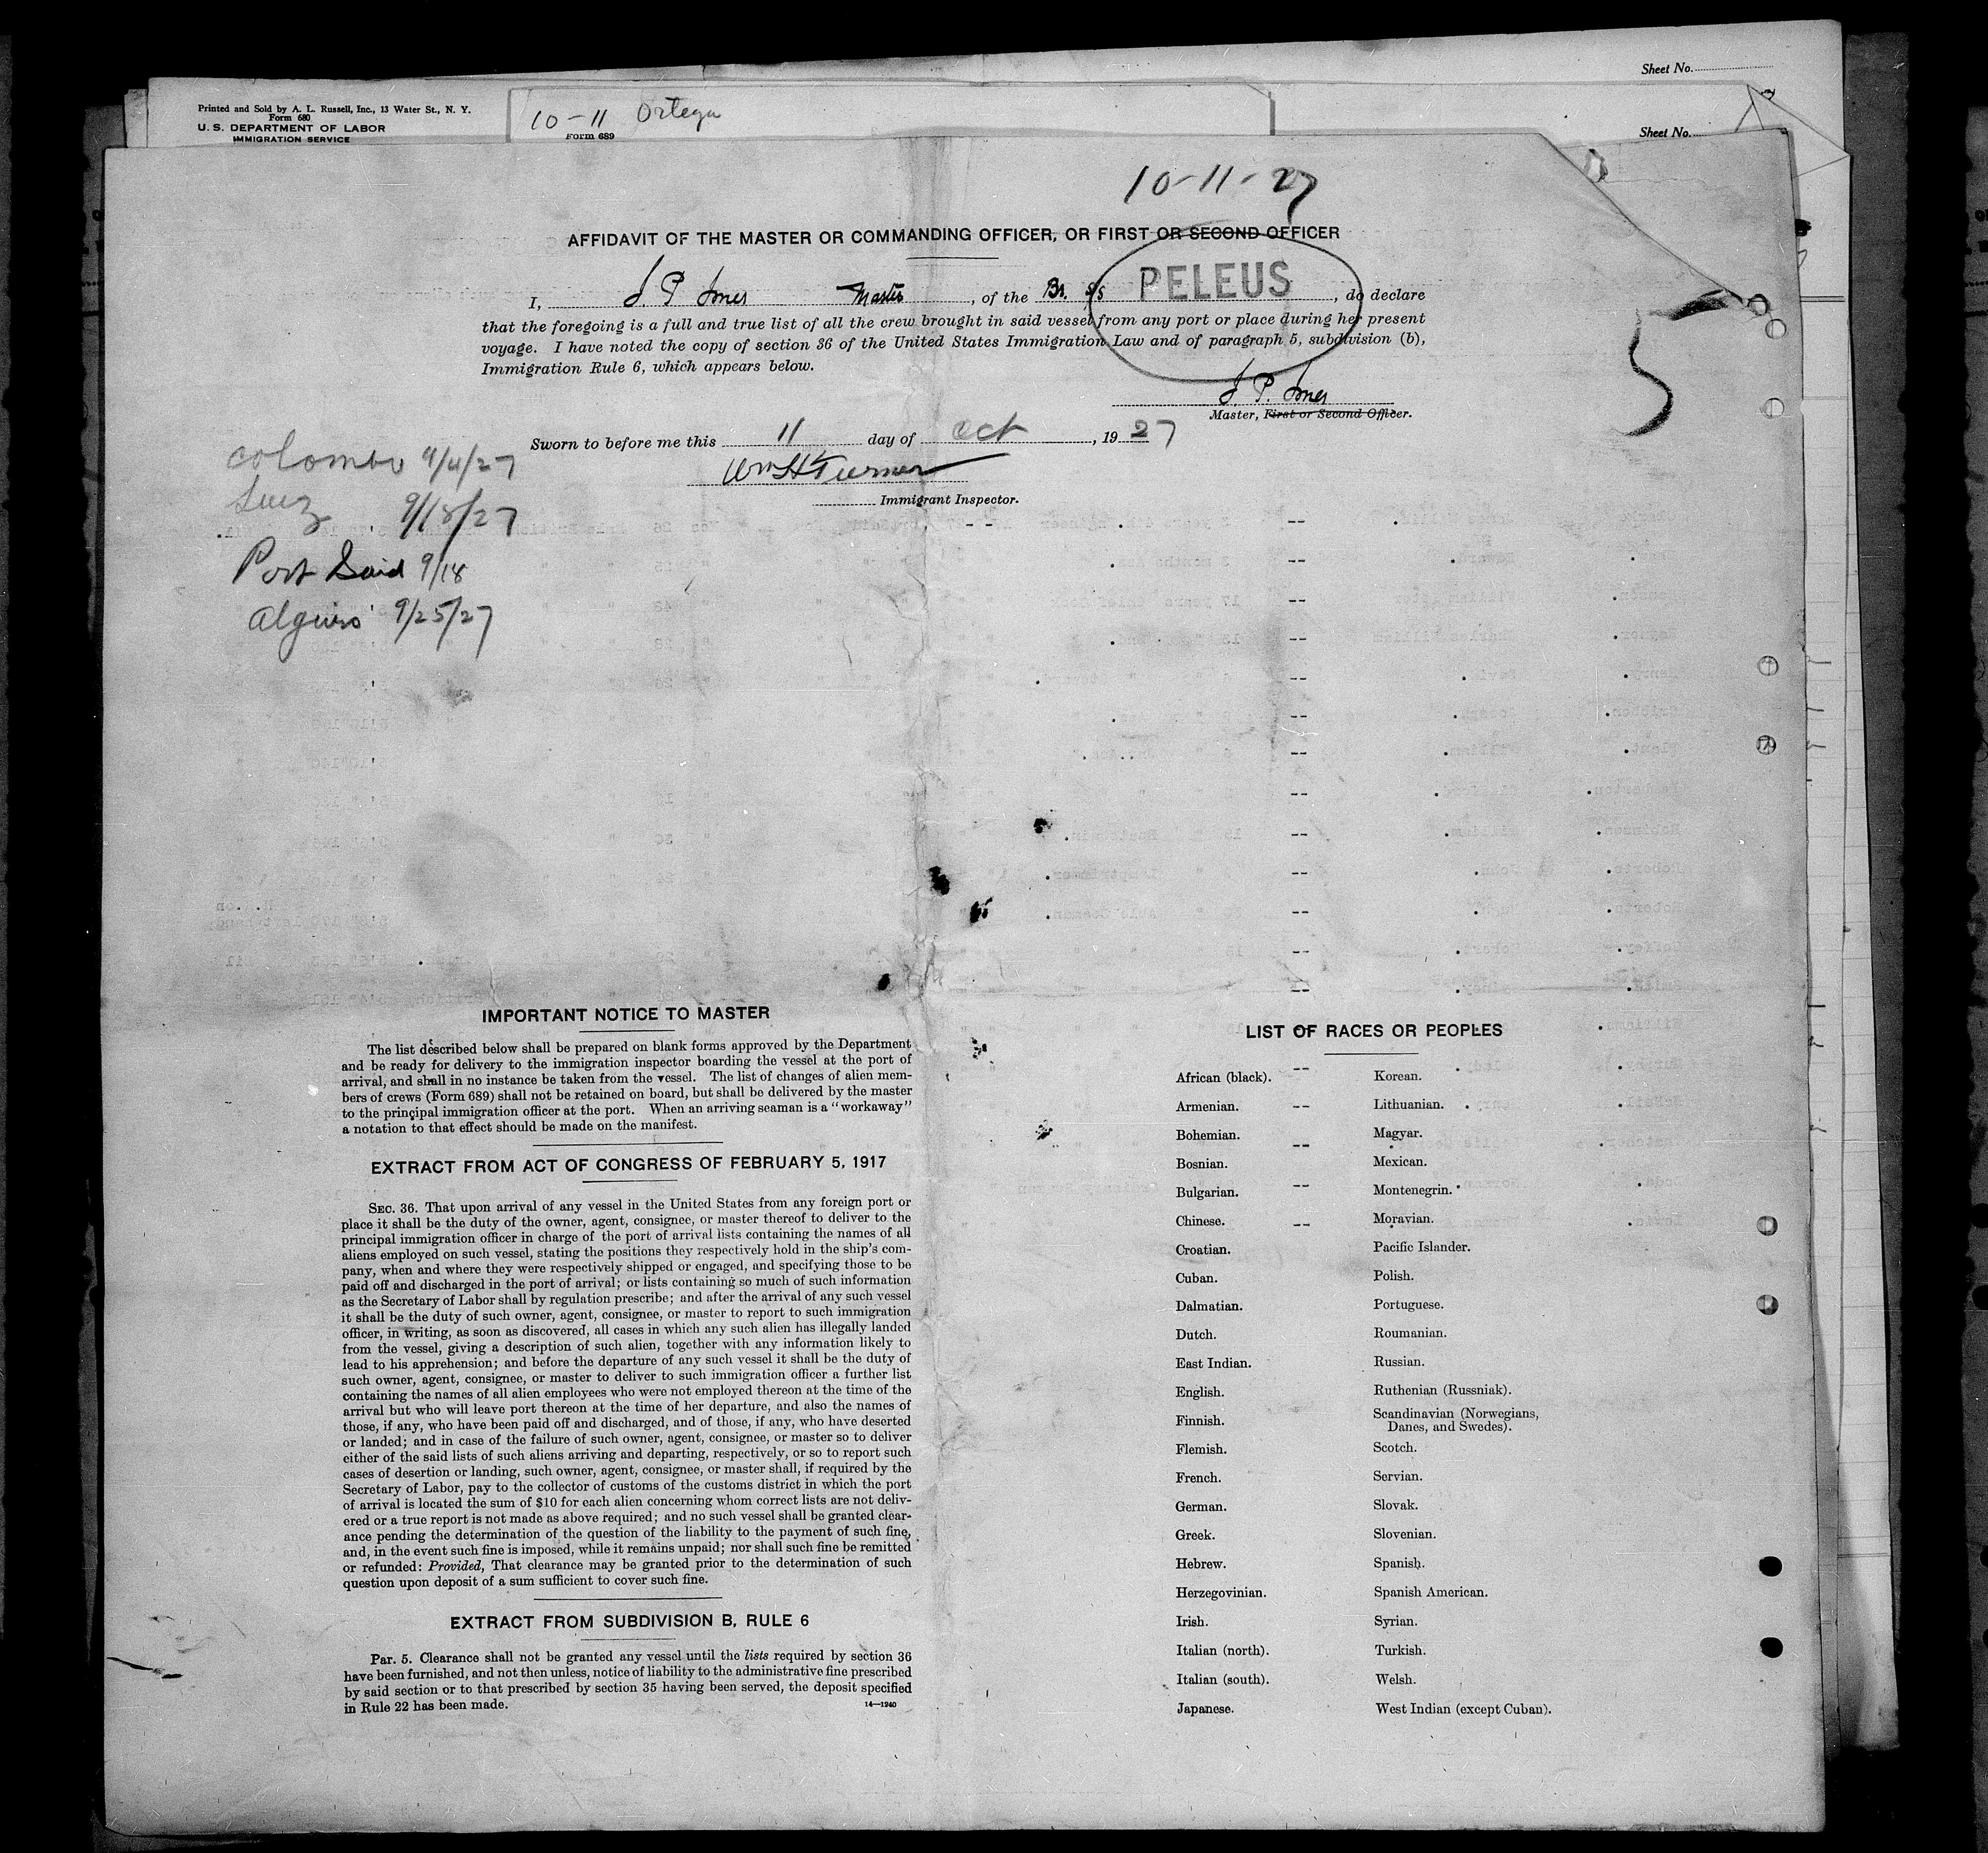 Sheet No.
Printed and Sold by A. L. Russell, Inc., 13 Water St., N. Y.
Form 680
U. S. DEPARTMENT OF LABOR
IMMIGRATION SERVICE
10-11 Ortega
Form 689
Sheet No.
10-11-27
AFFIDAVIT OF THE MASTER OR COMMANDING OFFICER, OR FIRST OR SECOND OFFICER
I, J. P. Jones Master, of the Br. S/S PELEUS, do declare
that the foregoing is a full and true list of all the crew brought in said vessel from any port or place during her present
voyage. I have noted the copy of section 36 of the United States Immigration Law and of paragraph 5, subdivision (b),
Immigration Rule 6, which appears below.
J. P. Jones
Master, First or Second Officer.
5
Sworn to before me this 11 day of Oct, 1927
Wm H Turner
Immigrant Inspector.
Colombo 9/4/27
Suez 9/18/27
Port Said 9/18
9/25/27
IMPORTANT NOTICE TO MASTER
The list described below shall be prepared on blank forms approved by the Department
and be ready for delivery to the immigration inspector boarding the vessel at the port of
arrival, and shall in no instance be taken from the vessel. The list of changes of alien mem-
bers of crews (Form 689) shall not be retained on board, but shall be delivered by the master
to the principal immigration officer at the port. When an arriving seaman is a "workaway"
a notation to that effect should be made on the manifest.
EXTRACT FROM ACT OF CONGRESS OF FEBRUARY 5, 1917
SEC. 36. That upon arrival of any vessel in the United States from any foreign port or
place it shall be the duty of the owner, agent, consignee, or master thereof to deliver to the
principal immigration officer in charge of the port of arrival lists containing the names of all
aliens employed on such vessel, stating the positions they respectively hold in the ship's com-
pany, when and where they were respectively shipped or engaged, and specifying those to be
paid off and discharged in the port of arrival; or lists containing so much of such information
as the Secretary of Labor shall by regulation prescribe; and after the arrival of any such vessel
it shall be the duty of such owner, agent, consignee, or master to report to such immigration
officer, in writing, as soon as discovered, all cases in which any such alien has illegally landed
from the vessel, giving a description of such alien, together with any information likely to
lead to his apprehension; and before the departure of any such vessel it shall be the duty of
such owner, agent, consignee, or master to deliver to such immigration officer a further list
containing the names of all alien employees who were not employed thereon at the time of the
arrival but who will leave port thereon at the time of her departure, and also the names of
those, if any, who have been paid off and discharged, and of those, if any, who have deserted
or landed; and in case of the failure of such owner, agent, consignee, or master so to deliver
either of the said lists of such aliens arriving and departing, respectively, or so to report such
cases of desertion or landing, such owner, agent, consignee, or master shall, if required by the
Secretary of Labor, pay to the collector of customs of the customs district in which the port
of arrival is located the sum of $10 for each alien concerning whom correct lists are not deliv-
ered or a true report is not made as above required; and no such vessel shall be granted clear-
ance pending the determination of the question of the liability to the payment of such fine,
and, in the event such fine is imposed, while it remains unpaid; nor shall such fine be remitted
or refunded: Provided, That clearance may be granted prior to the determination of such
question upon deposit of a sum sufficient to cover such fine.
EXTRACT FROM SUBDIVISION B, RULE 6
Par. 5. Clearance shall not be granted any vessel until the lists required by section 36
have been furnished, and not then unless, notice of liability to the administrative fine prescribed
by said section or to that prescribed by section 35 having been served, the deposit specified
in Rule 22 has been made.
14—1240
LIST OF RACES OR PEOPLES
African (black).
Armenian.
Bohemian.
Bosnian.
Bulgarian.
Chinese.
Croatian.
Cuban.
Dalmatian.
Dutch.
East Indian.
English.
Finnish.
Flemish.
French.
German.
Greek.
Hebrew.
Herzegovinian.
Irish.
Italian (north).
Italian (south).
Japanese.
Korean.
Lithuanian.
Magyar.
Mexican.
Montenegrin.
Moravian.
Pacific Islander.
Polish.
Portuguese.
Roumanian.
Russian.
Ruthenian (Russniak).
Scandinavian (Norwegians,
Danes, and Swedes).
Scotch.
Servian.
Slovak.
Slovenian.
Spanish.
Spanish American.
Syrian.
Turkish.
Welsh.
West Indian (except Cuban).